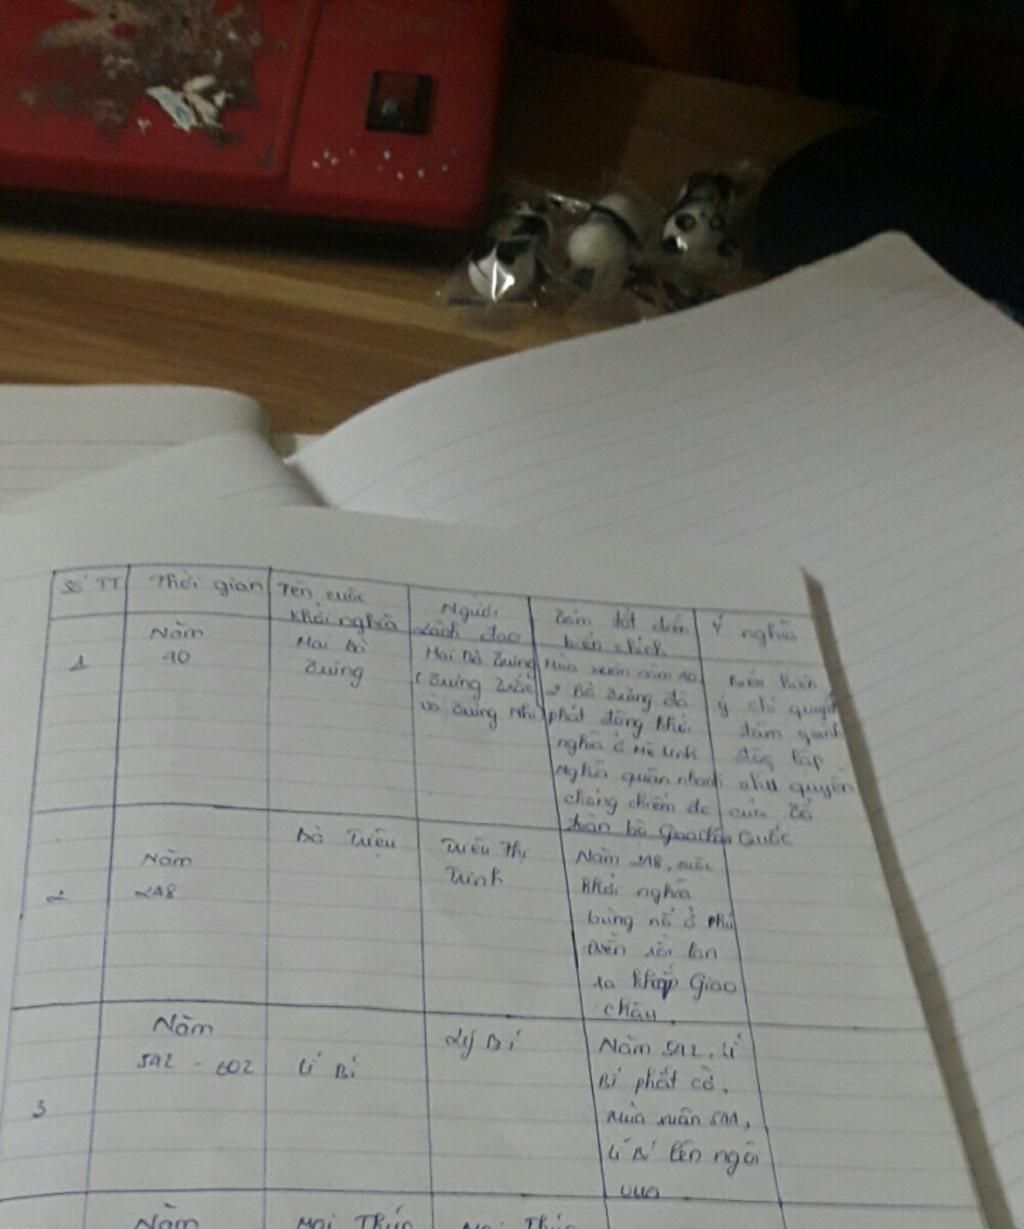 Số TT
Thời gian
Tên cuộc
khởi nghĩa
Người
lãnh đạo
Tóm tắt diễn
biến chính
Ý nghĩa
1
Năm
40
Hai Bà
Trưng
Hai Bà Trưng
(Trưng Trắc
và Trưng Nhị
Mùa xuân năm 40
2 Bà Trưng đã
phát động khởi
nghĩa ở Mê Linh
Nghĩa quân nhanh
chóng chiếm đc
toàn bộ Giao
ý chí quyết
độc lập
chủ quyền
của Tổ
Quốc
2
Năm
248
Bà Triệu
Triệu Thị
Trinh
Năm 248, cuộc
khởi nghĩa
bùng nổ ở Phú
Điền rồi lan
ra khắp Giao
châu.
3
Năm
542 - 602
Lí Bí
Lý Bí
Năm 542, Lí
Bí phất cờ.
Mùa xuân 544,
Lí Bí lên ngôi
vua
Năm
Mai Thúc
Mai Thúc